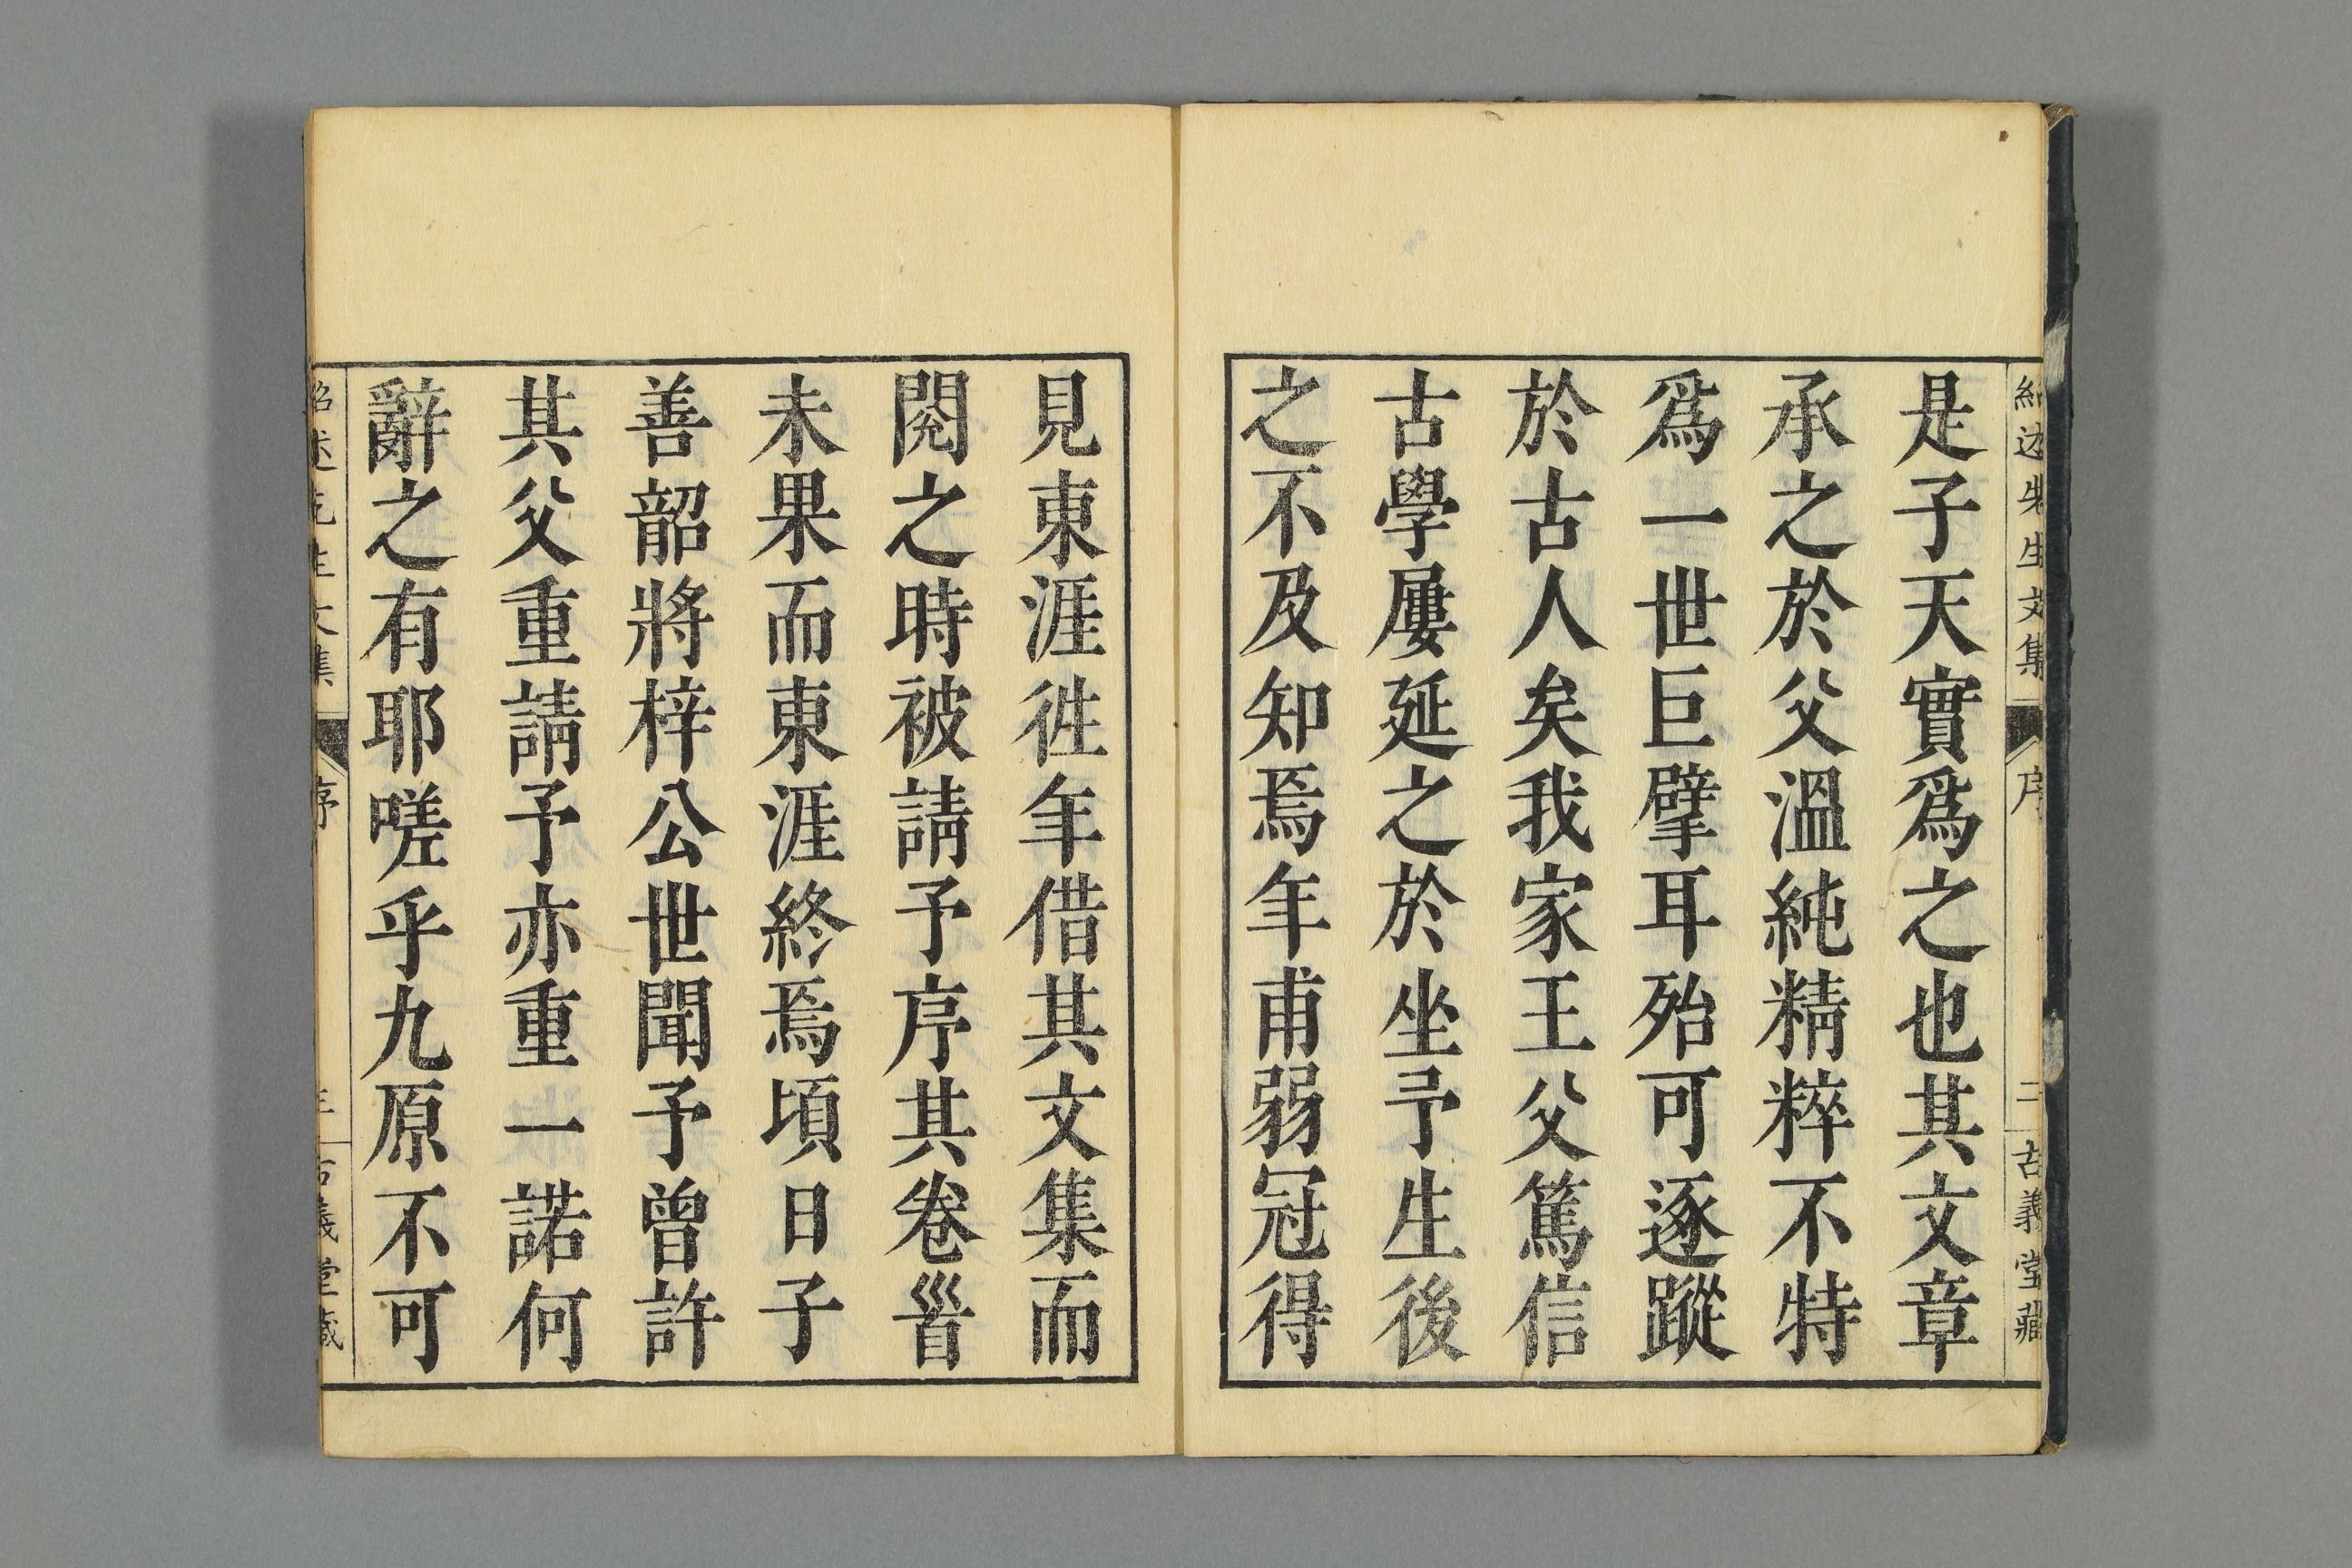 紹述先生文集 序 二 古義堂藏
是子天實爲之也其文章
承之於父溫純精粹不特
爲一世巨擘耳殆可逐蹤
於古人矣我家王父篤信
古學屢延之於坐予生後
之不及知焉年甫弱冠得
見東涯徃年借其文集而
閱之時被請予序其卷首
未果而東涯終焉頃日子
善韶將梓公世聞予曾許
其父重請予亦重一諾何
辭之有耶嗟乎九原不可
紹述先生文集 序 三 古義堂藏